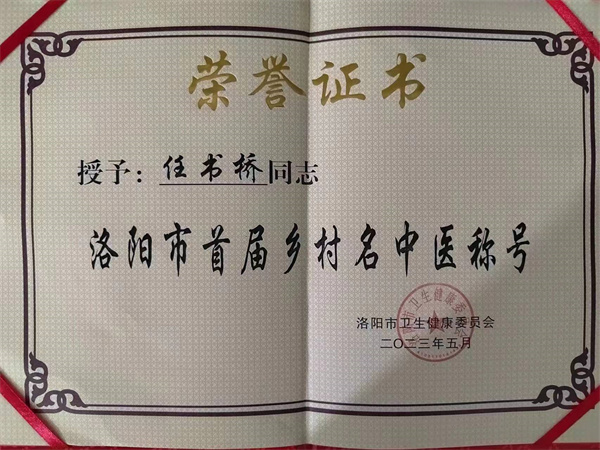 荣誉证书
授予：任书桥同志
洛阳市首届乡村名中医称号
洛阳市卫生健康委员会
二〇二三年五月
洛阳市卫生健康委员会